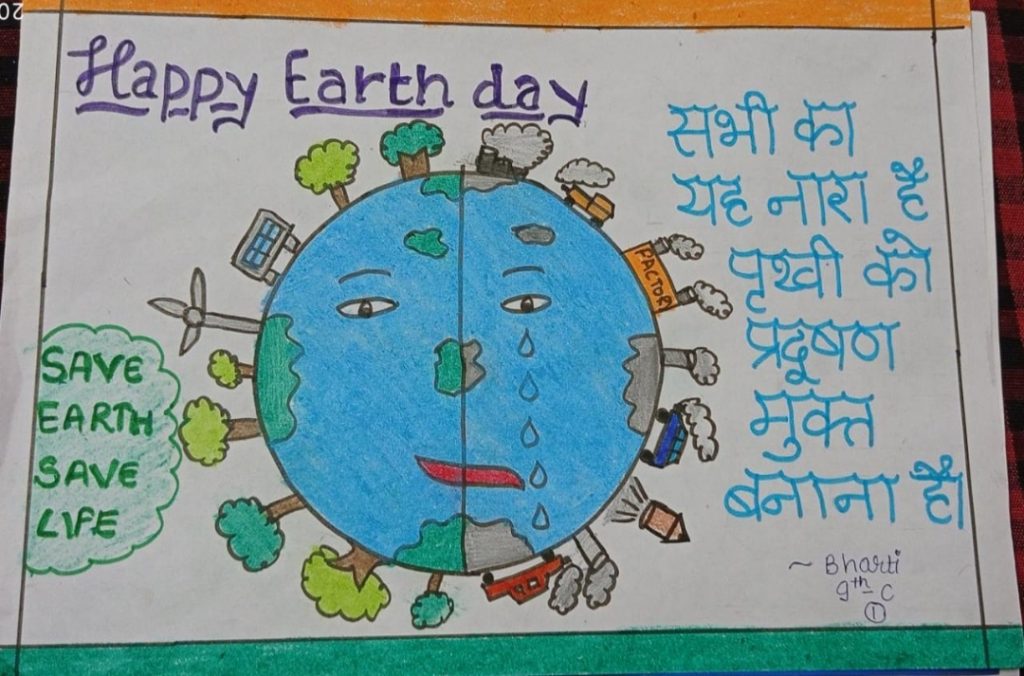 Happy Earth day
सभी का
यह नारा है
पृथ्वी को
प्रदूषण
मुक्त
बनाना है।
SAVE
EARTH
SAVE
LIFE
FACTORY
~ Bharti
9th - C
1